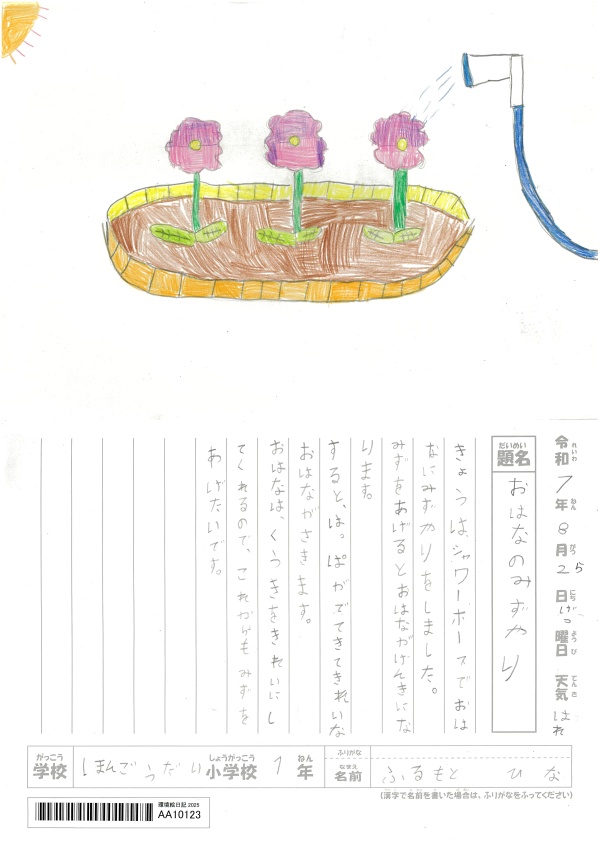 令和7年8月25日げつ曜日 天気はれ
れいわ ねん がつ にち ようび てんき
だいめい
題名 おはなのみずやり
きょうは、シャワーホースでおは
なにみずやりをしました。
みずをあげるとおはながげんきにな
ります。
すると、はっぱがでてきてきれいな
おはながさきます。
おはなは、くうきをきれいにし
てくれるので、これからもみずを
あげたいです。
がっこう しょうがっこう ねん
学校 しまんごうだい小学校 1年
ふりがな
なまえ
名前 ふるもと ひな
(漢字で名前を書いた場合は、ふりがなをふってください)
環境絵日記 2025
AA10123